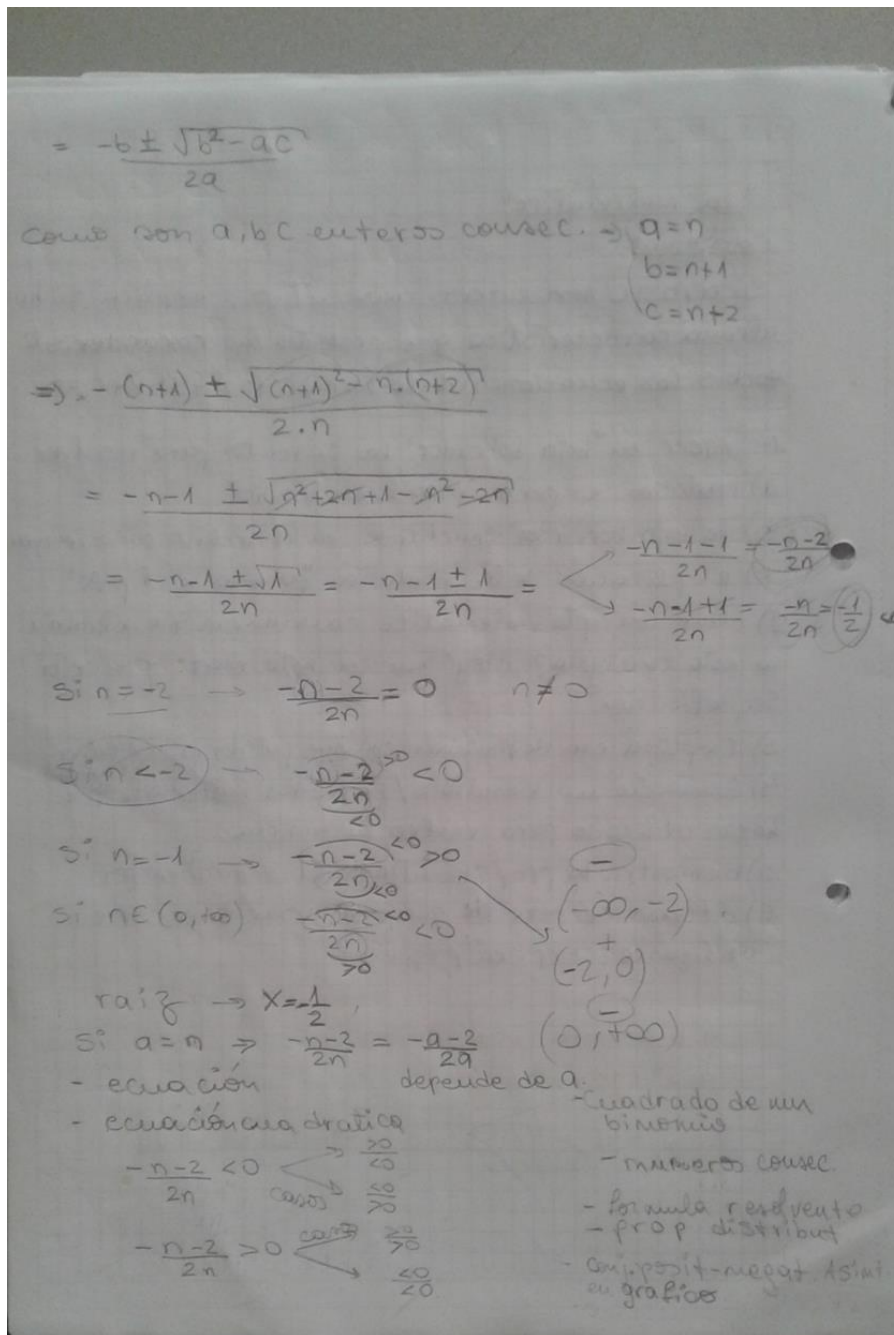 = -b ± √b² - ac
2a
como son a, b c enteros consec. → a = n
b = n+1
c = n+2
⇒ -(n+1) ± √(n+1)² - n.(n+2)
2.n
= -n-1 ± √n²+2n+1-n²-2n
2n
= -n-1 ± √1 / 2n = -n-1 ± 1 / 2n = → -n-1-1 / 2n = -n-2 / 2n
→ -n-1+1 / 2n = -n / 2n = -1/2
Si n = -2 → -n-2 / 2n = 0 n ≠ 0
Si n < -2 → -n-2 >0 / 2n <0 < 0
Si n = -1 → -n-2 <0 / 2n <0 > 0
Si n ∈ (0, +∞) -n-2 <0 / 2n >0 < 0
−
(-∞, -2)
+
(-2, 0)
−
(0, +∞)
raiz → x = -1/2
Si a = n ⇒ -n-2 / 2n = -a-2 / 2a
depende de a.
- ecuación
- ecuación cuadratica
-n-2 / 2n < 0 casos → >0 / <0
→ <0 / >0
-n-2 / 2n > 0 casos → >0 / >0
→ <0 / <0
- Cuadrado de un
binomio
- numeros consec.
- formula resolvente
- prop distribut
- conj. posit-negat
en grafico